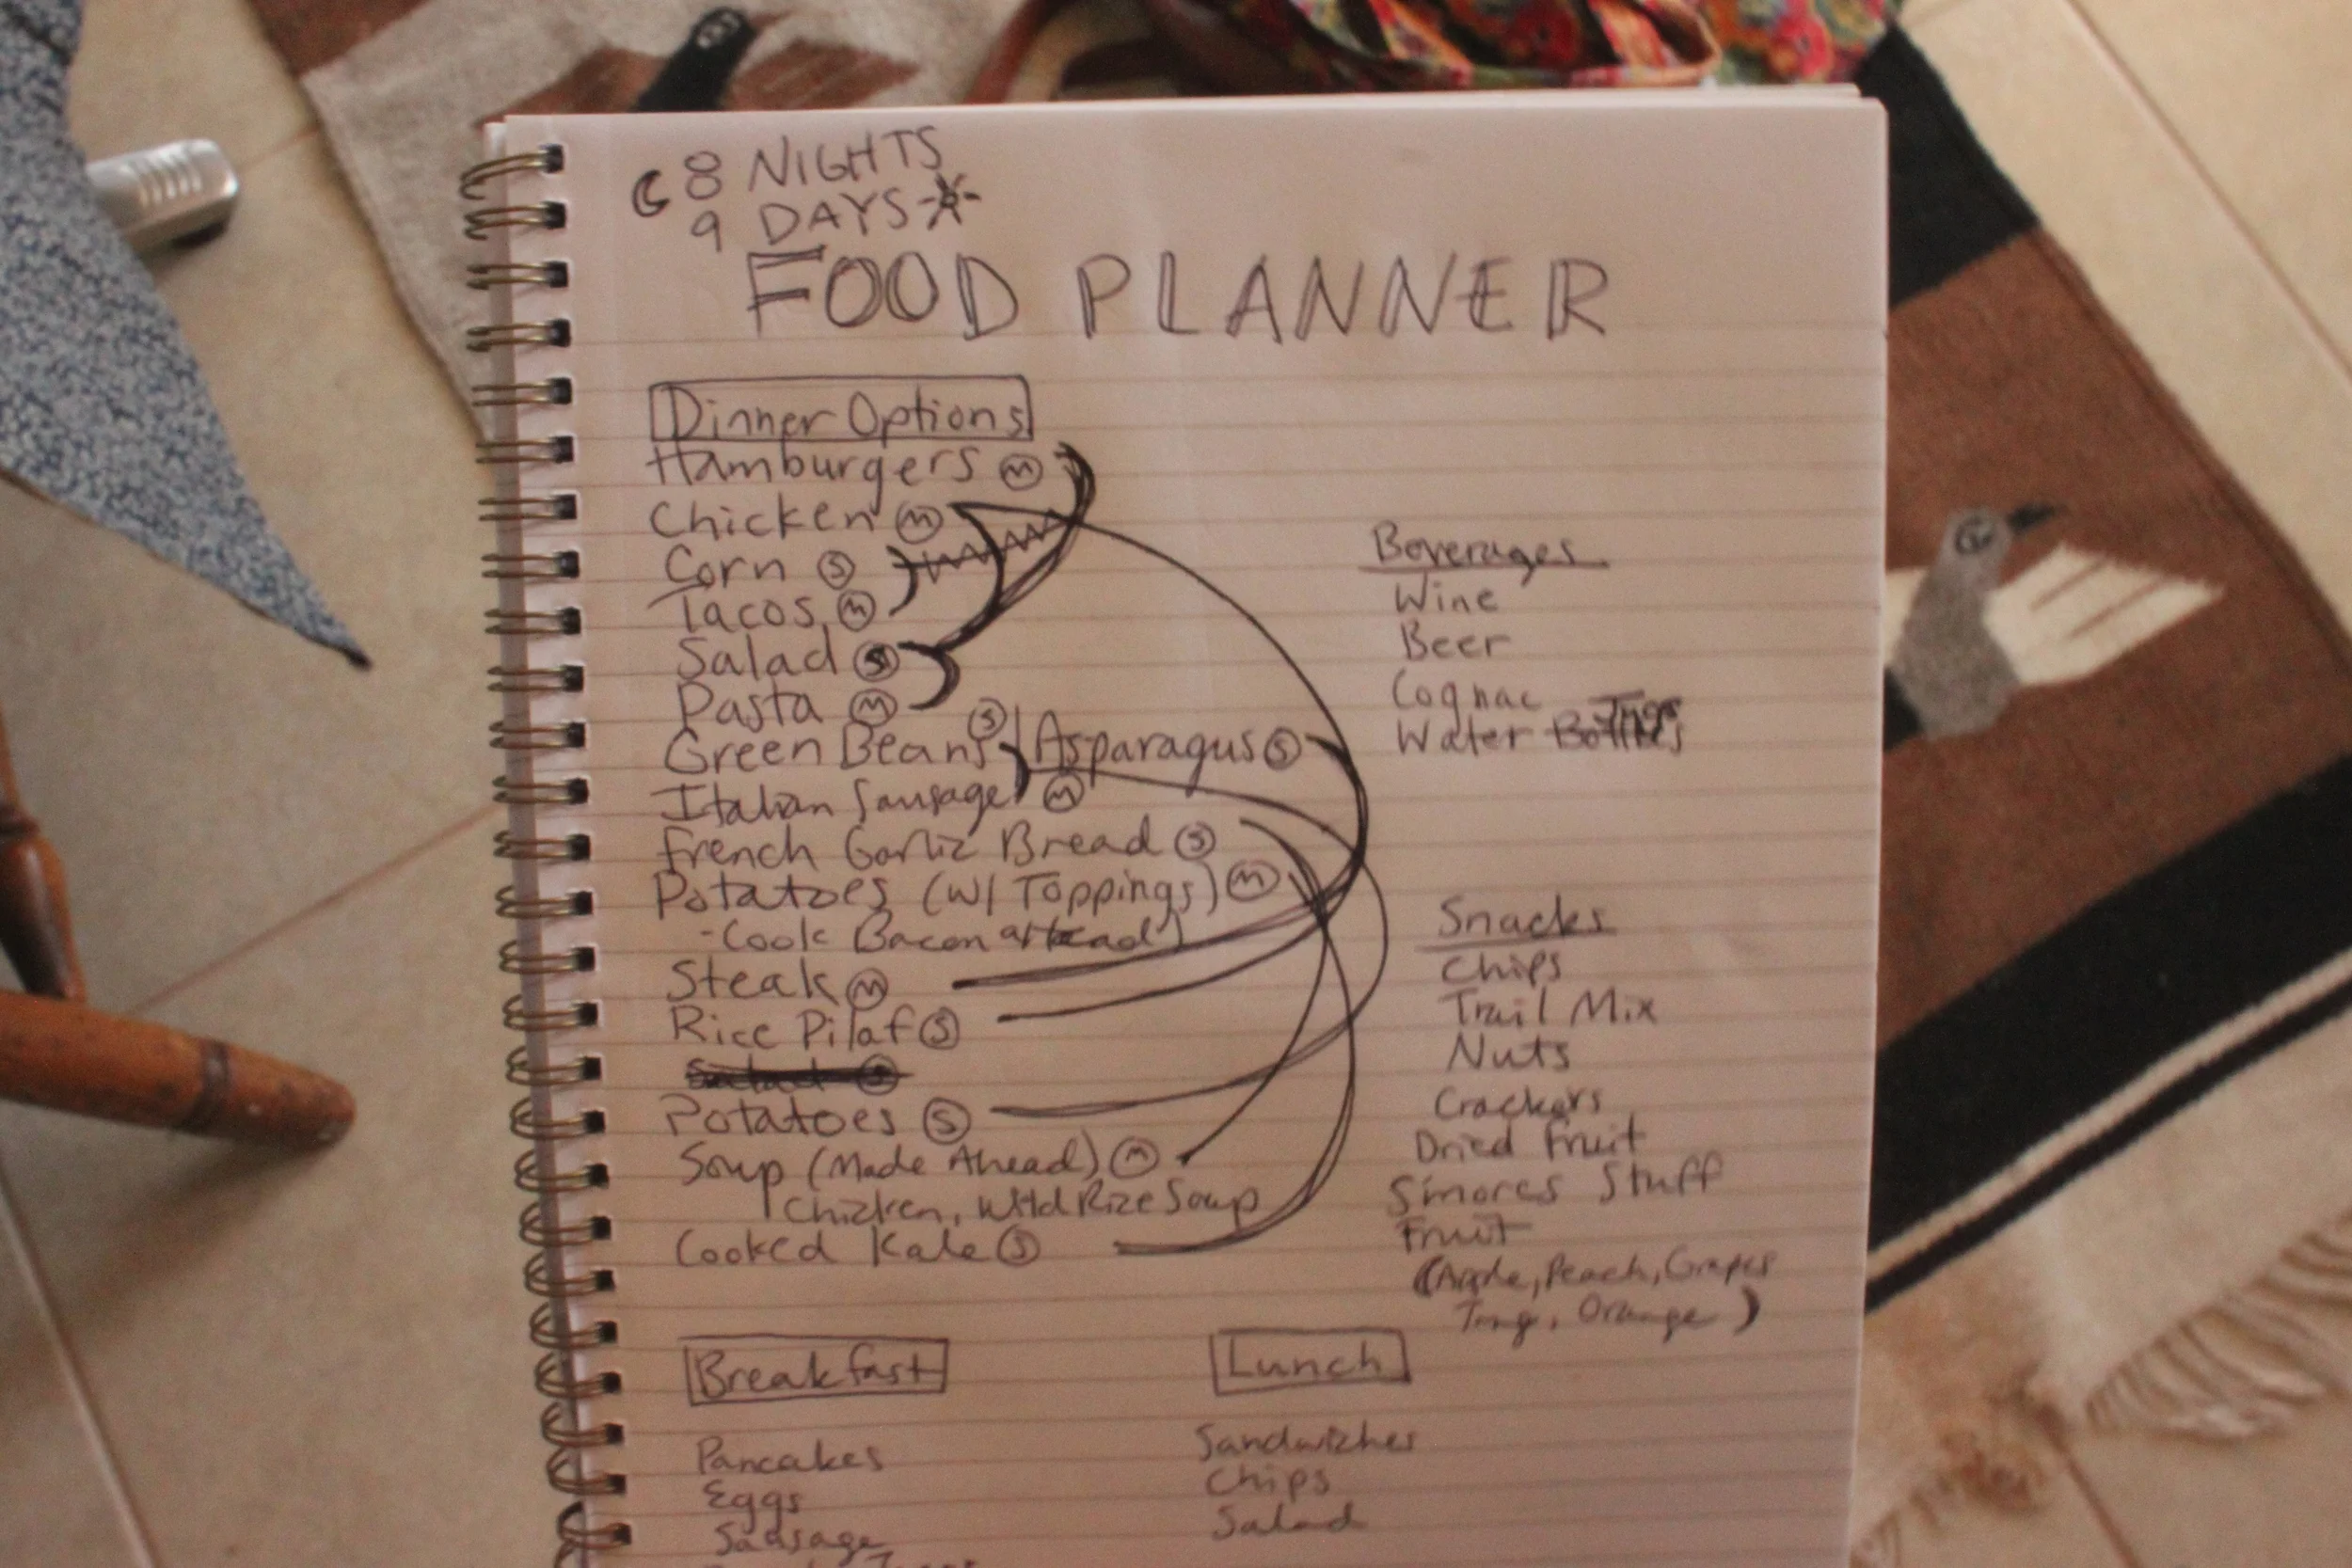 8 NIGHTS
9 DAYS
FOOD PLANNER
Dinner Options
Hamburgers M
Chicken M
Corn S
Tacos M
Salad S
Pasta M
Green Beans S | Asparagus S
Italian Sausage M
French Garlic Bread S
Potatoes (w/ Toppings) M
- Cook Bacon ahead
Steak M
Rice Pilaf S
Salad S
Potatoes S
Soup (Made Ahead) M
Chicken, Wild Rice Soup
Cooked Kale S
Beverages
Wine
Beer
Cognac
Water Bottles Jugs
Snacks
Chips
Trail Mix
Nuts
Crackers
Dried Fruit
S'mores Stuff
Fruit
(Apple, Peach, Grapes
Tang, Orange)
Breakfast
Pancakes
Eggs
Sausage
Lunch
Sandwiches
Chips
Salad